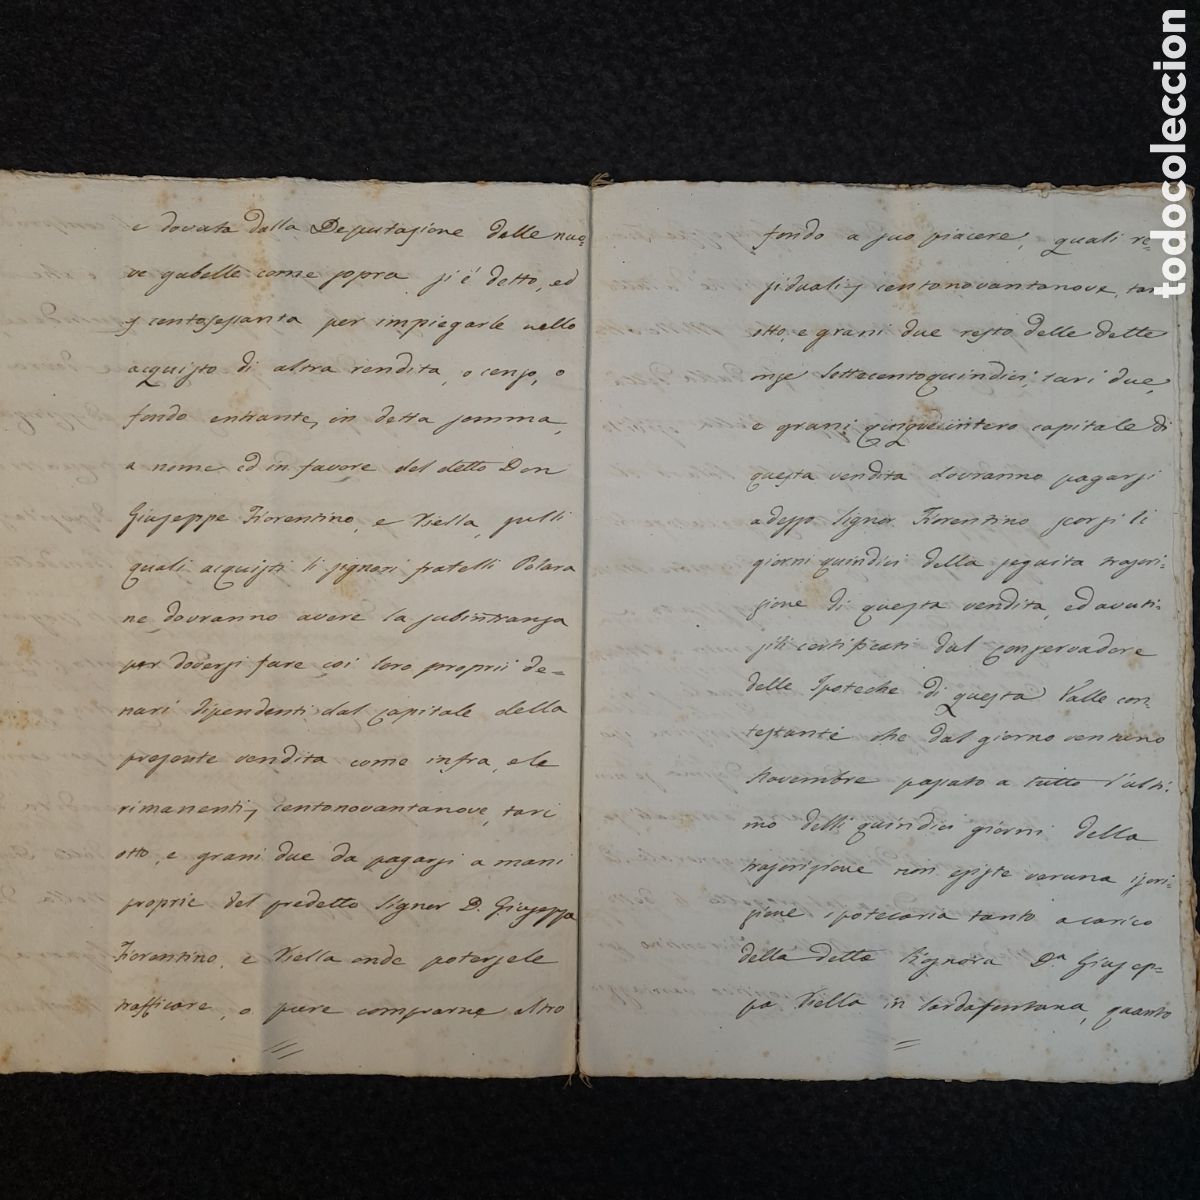 e dovuta dalla Deputasione delle nuo-
ve gabelle come sopra si é detto, ed
centosessanta per impiegarle nello
acquisto di altra rendita, o censo, o
fondo entrante, in detta somma,
a nome ed in favore del detto Don
Giuseppe Fiorentino, e Viella, sulli
quali acquisti li signori fratelli Polara
ne dovranno avere la subintranza
per doversi fare coi loro proprii de-
nari dipendenti dal capitale della
presente vendita come infra, e le
rimanenti centonovantanove, tari
otto, e grani due da pagarsi a mani
proprie del predetto Signor D. Giuseppe
Fiorentino, e Viella onde potersele
trafficare, o pure comprarne altro
fondo a suo piacere, quali re-
siduali centonovantanove, tari
otto, e grani due resto delle dette
onze Settecentoquindici, tari due,
e grani intero capitale di
questa vendita dovranno pagarsi
adesso Signor Fiorentino scorsi li
giorni quindici della seguita trascri-
zione di questa vendita, ed avuti-
si li certificati dal Conservadore
delle Ipoteche di questa Valle con-
testanté che dal giorno ventuno
Novembre passato a tutto l'ulti-
mo delli quindici giorni della
trascrizione non esiste veruna iscri-
zione ipotecaria tanto a carico
della detta Signora D.ª Giusep-
pa Viella in Sardafontana, quanto
todocoleccion